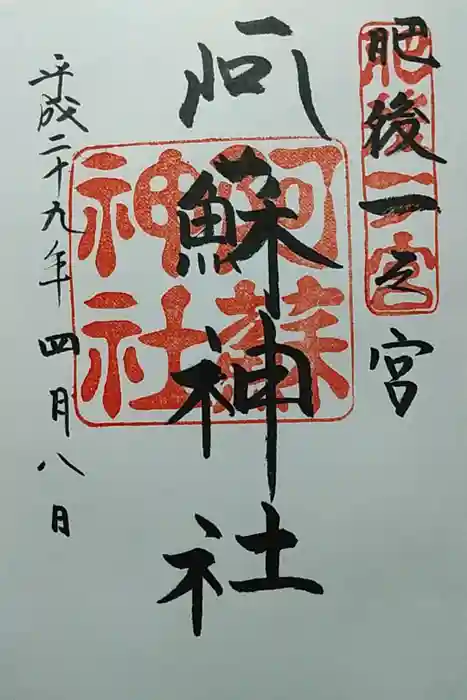 肥後一之宮
肥後一宮
阿蘇神社
阿蘇神社
平成二十九年四月八日